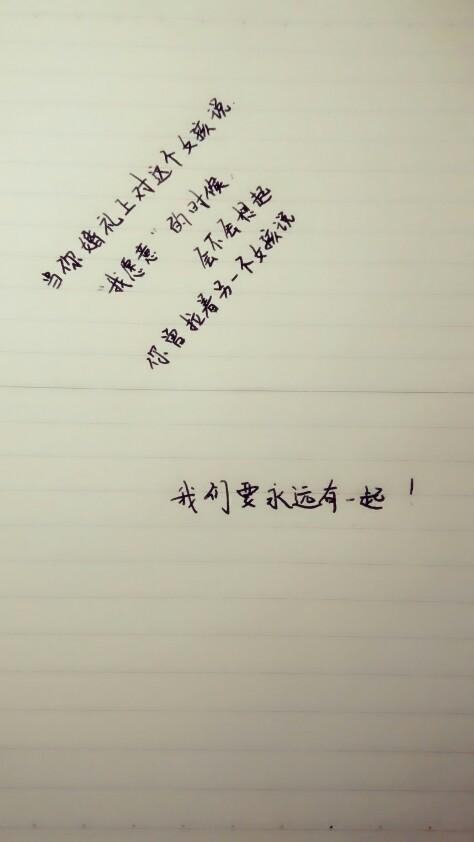 当你婚礼上对这个女孩说
“我愿意”的时候
会不会想起
你曾拉着另一个女孩说
我们要永远有一起！